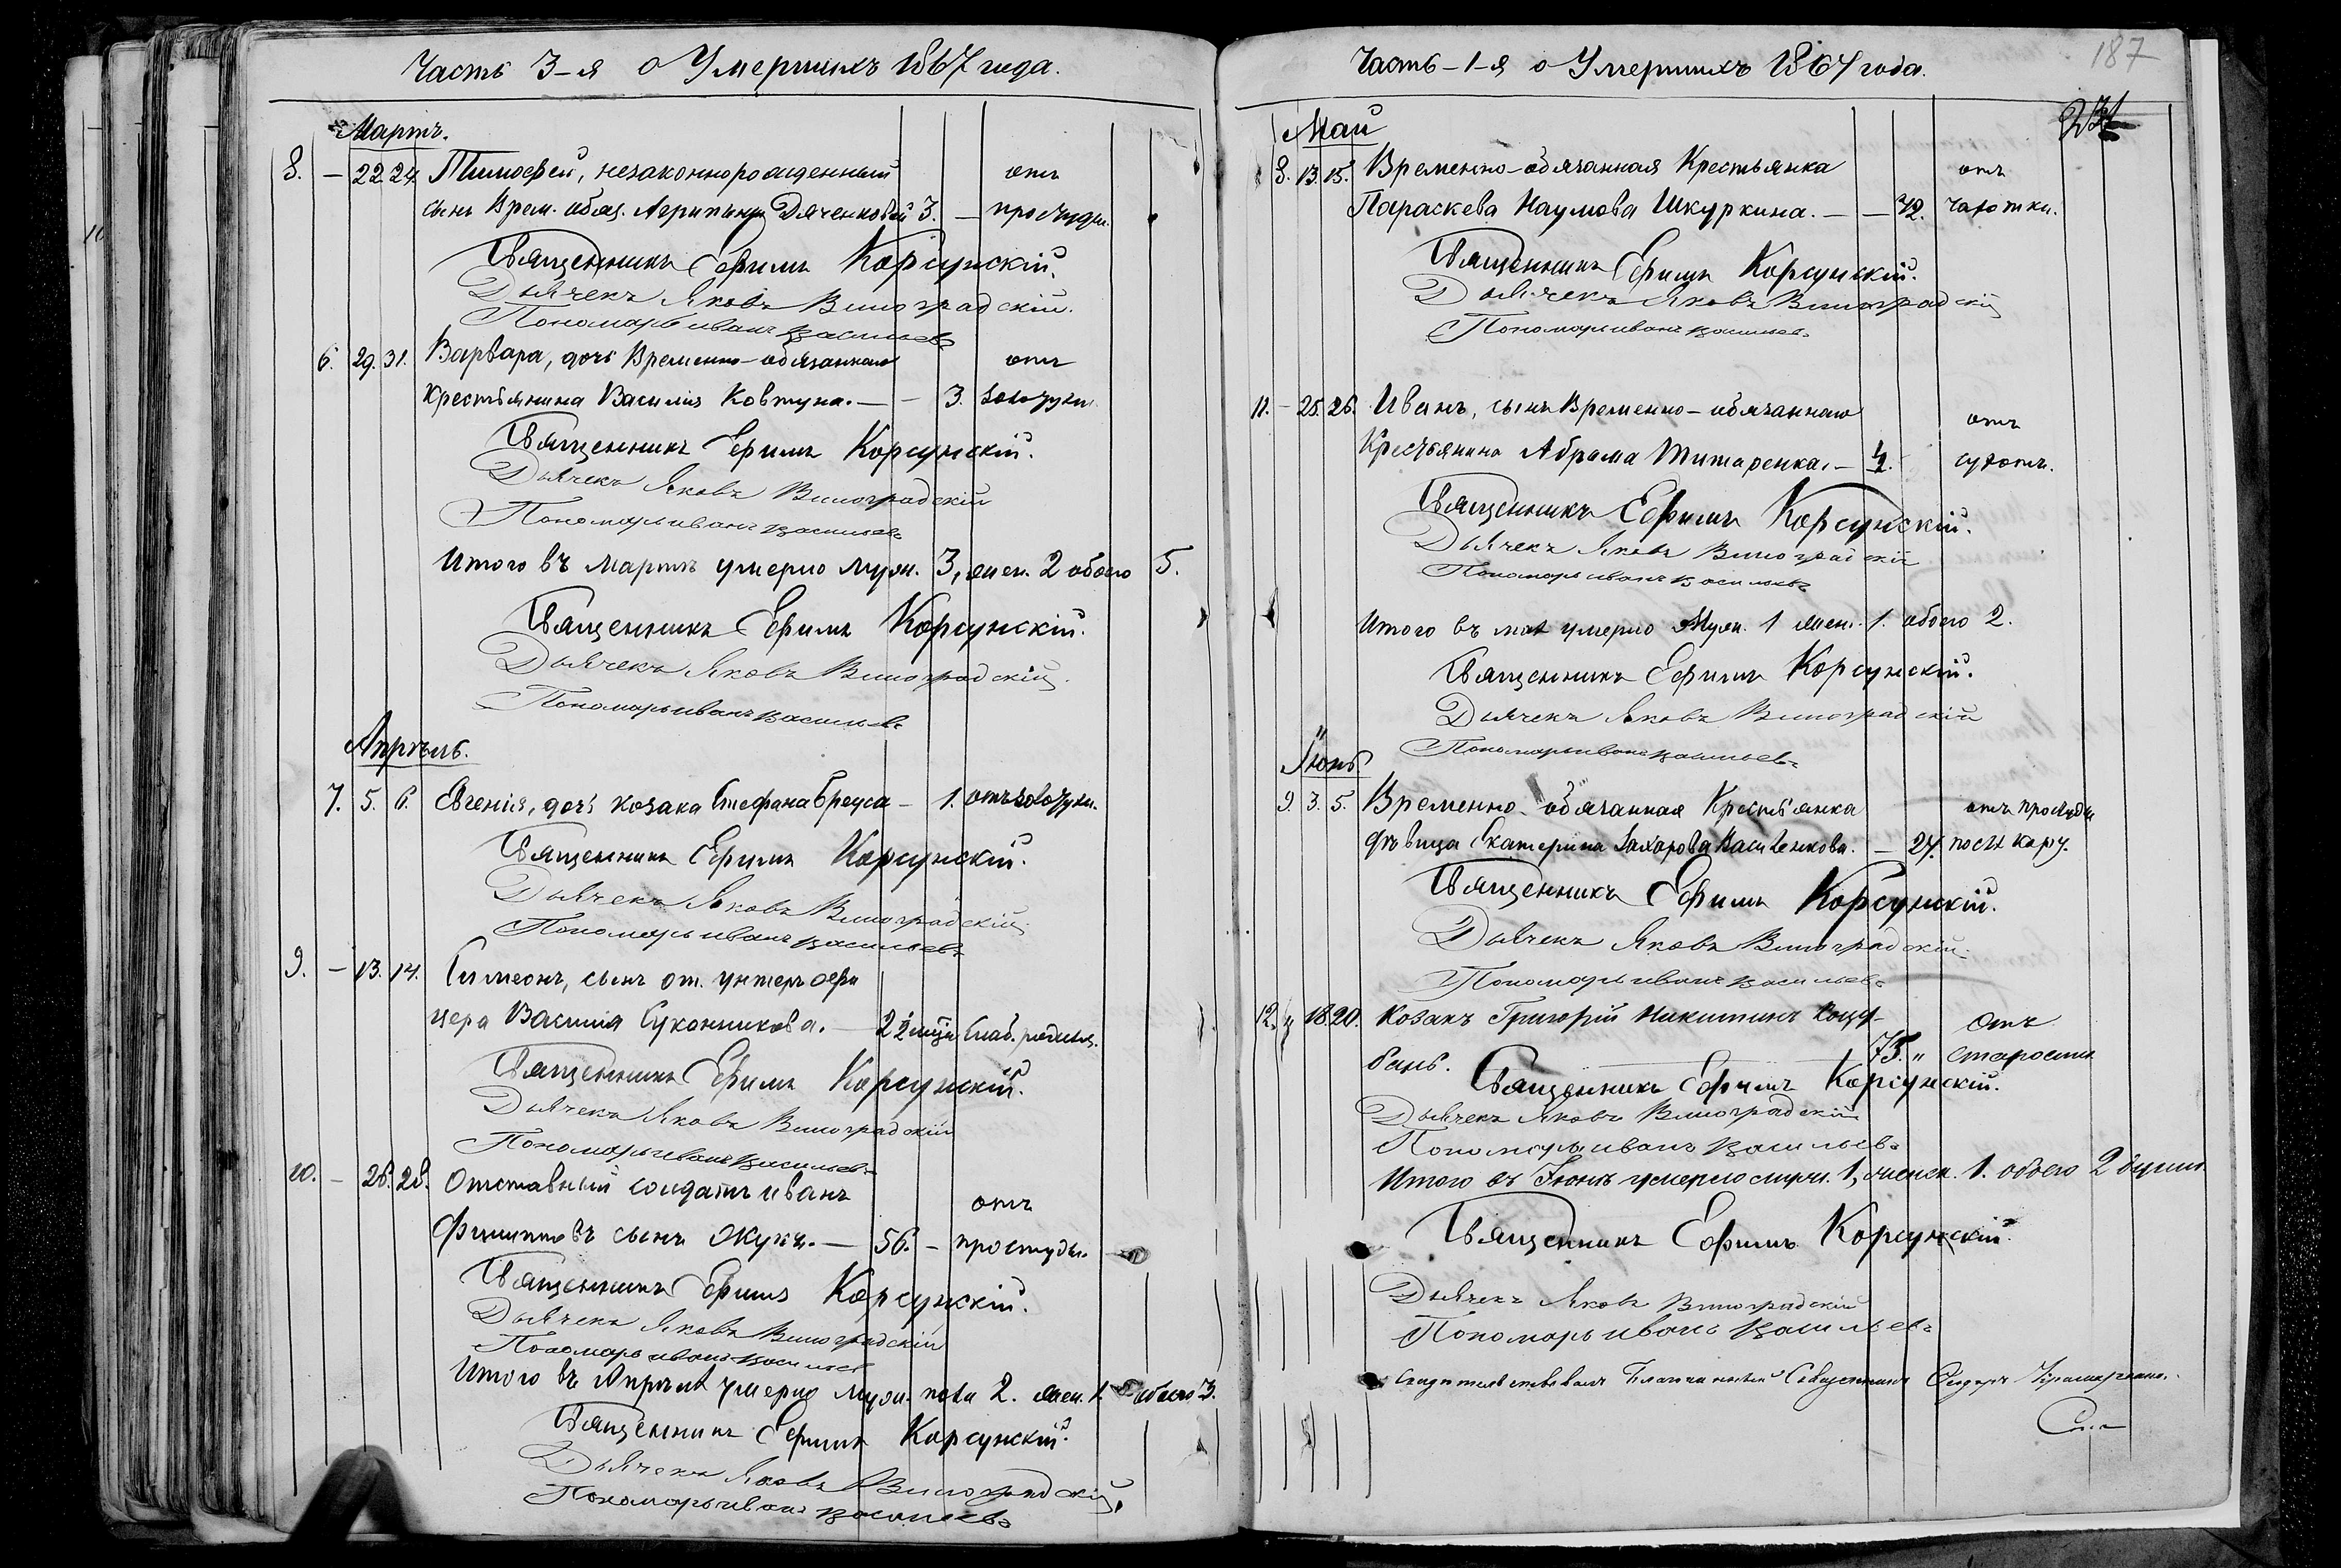 Часть 3-я о Умершихъ 1867 года.
Мартъ.
8. — 22 24. Тимофей, незаконнорожденный отъ
сынъ Врем. обяз. Агрипины Дяченковой 3. — простуды.
Священникъ Ефимъ Корсунскій.
Дьячекъ Яковъ Виноградскій.
Пономарь иванъ васильевъ
6. 29. 31. Варвара, дочь Временно-обязаннаго отъ
Крестьянина Василія Ковтуна. — — 3. золотухи.
Священникъ Ефимъ Корсунскій.
Дьячекъ Яковъ Виноградскій
Пономарь иванъ васильевъ
Итого въ Мартѣ умерло муж. 3, жен. 2 обоего 5.
Священникъ Ефимъ Корсунскій.
Дьячекъ Яковъ Виноградскій.
Пономарь иванъ васильевъ
Апрѣль.
7. 5. 6. Евгенія, дочь козака Стефана Бреуса — 1. отъ золотухи.
Священникъ Ефимъ Корсунскій.
Дьячекъ Яковъ Виноградскій
Пономарь иванъ васильевъ
9. — 13. 14. Симеонъ, сынъ от. унтеръ офи
цера Василія Суконникова. — 2 1/2 мѣц. слаб.
Священникъ Ефимъ Корсунскій.
Дьячекъ Яковъ Виноградскій
Пономарь иванъ васильевъ
10. — 26. 28. Отставный солдатъ иванъ отъ
Филипповъ сынъ Окунь. — 56. — простуды.
Священникъ Ефимъ Корсунскій.
Дьячекъ Яковъ Виноградскій
Пономарь иванъ васильевъ
Итого въ Апрѣлѣ умерло муж. пола 2. жен. 1. обоего 3.
Священникъ Ефимъ Корсунскій.
Дьячекъ Яковъ Виноградскій,
Пономарь иванъ васильевъ
187
Часть-1-я о Умершихъ 1867 года.
Май
8. 13. 15. Временно-обязанная Крестьянка отъ
Параскева Наумова Шкуркина. — — 72. чахотки.
Священникъ Ефимъ Корсунскій.
Дьячекъ Яковъ Виноградскій
Пономарь иванъ васильевъ
11. — 25. 26. Иванъ, сынъ Временно-обязаннаго отъ
Крестьянина Абрама Титаренка. — сухотъ.
Священникъ Ефимъ Корсунскій.
Дьячекъ Яковъ Виноградскій
Пономарь иванъ васильевъ
Итого въ маѣ умерло Муж. 1 жен. 1. обоего 2.
Священникъ Ефимъ Корсунскій.
Дьячекъ Яковъ Виноградскій
Пономарь иванъ васильевъ
Іюнь
9. 3. 5. Временно-обязанная Крестьянка отъ простуды
дѣвица Екатерина Захарова Василенкова. — 27. послѣ кору.
Священникъ Ефимъ Корсунскій.
Дьячекъ Яковъ Виноградскій.
Пономарь иванъ васильевъ
12. 18. 20. Козакъ Григорій Никитинъ Коцу- отъ
бань. 75. " старости
Священникъ Ефимъ Корсунскій.
Дьячекъ Яковъ Виноградскій
Пономарь иванъ васильевъ
Итого въ Іюнѣ умерло муж. 1, женск. 1. обоего 2 души.
Священникъ Ефимъ Корсунскій.
Дьячекъ Яковъ Виноградскій
Пономарь иванъ васильевъ
Свидетельствовалъ Благочинный Священникъ